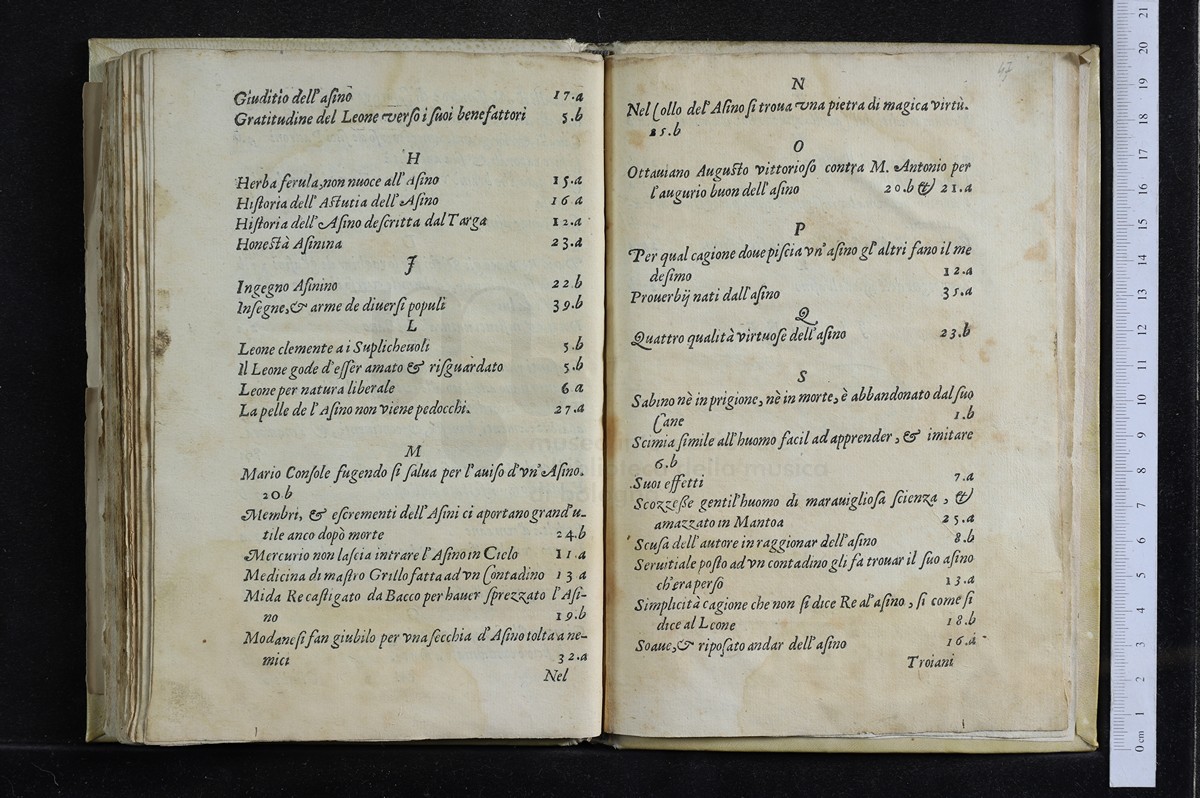 Giuditio dell'asino 17.a
Gratitudine del Leone verso i suoi benefattori 5.b
H
Herba ferula, non nuoce all'Asino 15.a
Historia dell'Astutia dell'Asino 16 a
Historia dell'Asino descritta dal Targa 12.a
Honestà Asinina 23.a
J
Ingegno Asinino 22.b
Insegne, & arme de diuersi populi 39.b
L
Leone clemente a i Suplicheuoli 5.b
Il Leone gode d'esser amato & risguardato 5.b
Leone per natura liberale 6 a
La pelle de l'Asino non viene pedocchi. 27.a
M
Mario Console fugendo si salua per l'auiso d'vn'Asino.
20.b
Membri, & escrementi dell'Asini ci aportano grand'u-
tile anco dopò morte 24.b
Mercurio non lascia intrare l'Asino in Cielo 11.a
Medicina di mastro Grillo fatta ad vn Contadino 13 a
Mida Re castigato da Bacco per hauer sprezzato l'Asi-
no 19.b
Modanesi fan giubilo per vna secchia d'Asino tolta a ne-
mici 32.a
Nel
47
N
Nel Collo del'Asino si troua vna pietra di magica virtù.
25.b
O
Ottauiano Augusto vittorioso contra M. Antonio per
l'augurio buon dell'asino 20.b & 21.a
P
Per qual cagione doue piscia vn'asino gl'altri fano il me
desimo 12.a
Prouerbij nati dall'asino 35.a
Q
Quattro qualità virtuose dell'asino 23.b
S
Sabino nè in prigione, nè in morte, è abbandonato dal suo
Cane 1.b
Scimia simile all'huomo facil ad apprender, & imitare
6.b
Suoi effetti 7.a
Scozzese gentil'huomo di marauigliosa scienza, &
amazzato in Mantoa 25.a
Scusa dell'autore in raggionar dell'asino 8.b
Seruitiale posto ad vn contadino gli fà trouar il suo asino
ch'era perso 13.a
Simplicità cagione che non si dice Re al'asino, si come si
dice al Leone 18.b
Soaue, & riposato andar dell'asino 16.a
Troiani
museo internazionale
e biblioteca della musica
di bologna
0 cm 1 2 3 4 5 6 7 8 9 10 11 12 13 14 15 16 17 18 19 20 21